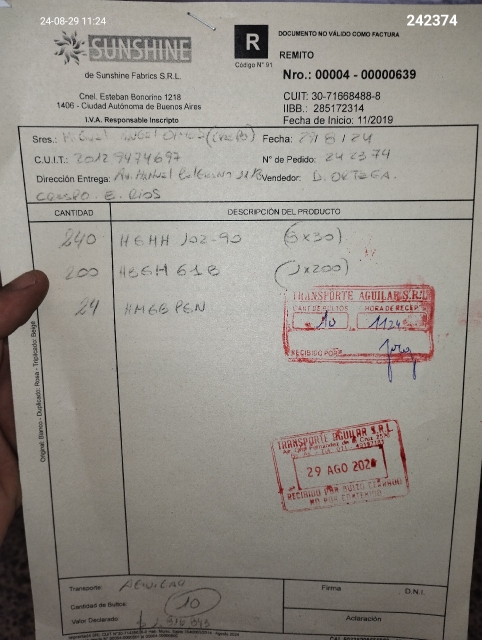 24-08-29 11:24
242374
SUNSHINE
de Sunshine Fabrics S.R.L.
Cnel. Esteban Bonorino 1218
1406 - Ciudad Autónoma de Buenos Aires
I.V.A. Responsable Inscripto
R
Código N° 91
DOCUMENTO NO VÁLIDO COMO FACTURA
REMITO
Nro.: 00004 - 00000639
CUIT: 30-71668488-8
IIBB.: 285172314
Fecha de Inicio: 11/2019
Sres.:
Fecha: 29/8/24
C.U.I.T.: 20129474697
N° de Pedido: 242374
Dirección Entrega: Av. Manuel Belgrano
Vendedor: D. ORTEGA.
CRESPO. E. RIOS
CANTIDAD
DESCRIPCIÓN DEL PRODUCTO
240 HGHH 102-90 (8x30)
200 HBGH 61B (1x200)
24
TRANSPORTE AGUILAR S.R.L
CANT DE BULTOS HORA DE RECEP.
10
RECIBIDO POR
TRANSPORTE AGUILAR S.R.L.
29 AGO 2024
RECIBIDO POR BULTO CERRADO
NO POR CONTENIDO
Original: Blanco - Duplicado: Rosa - Triplicado: Beige
Transporte: AGUILAR
Cantidad de Bultos: 10
Valor Declarado:
Firma
D.N.I.
Aclaración